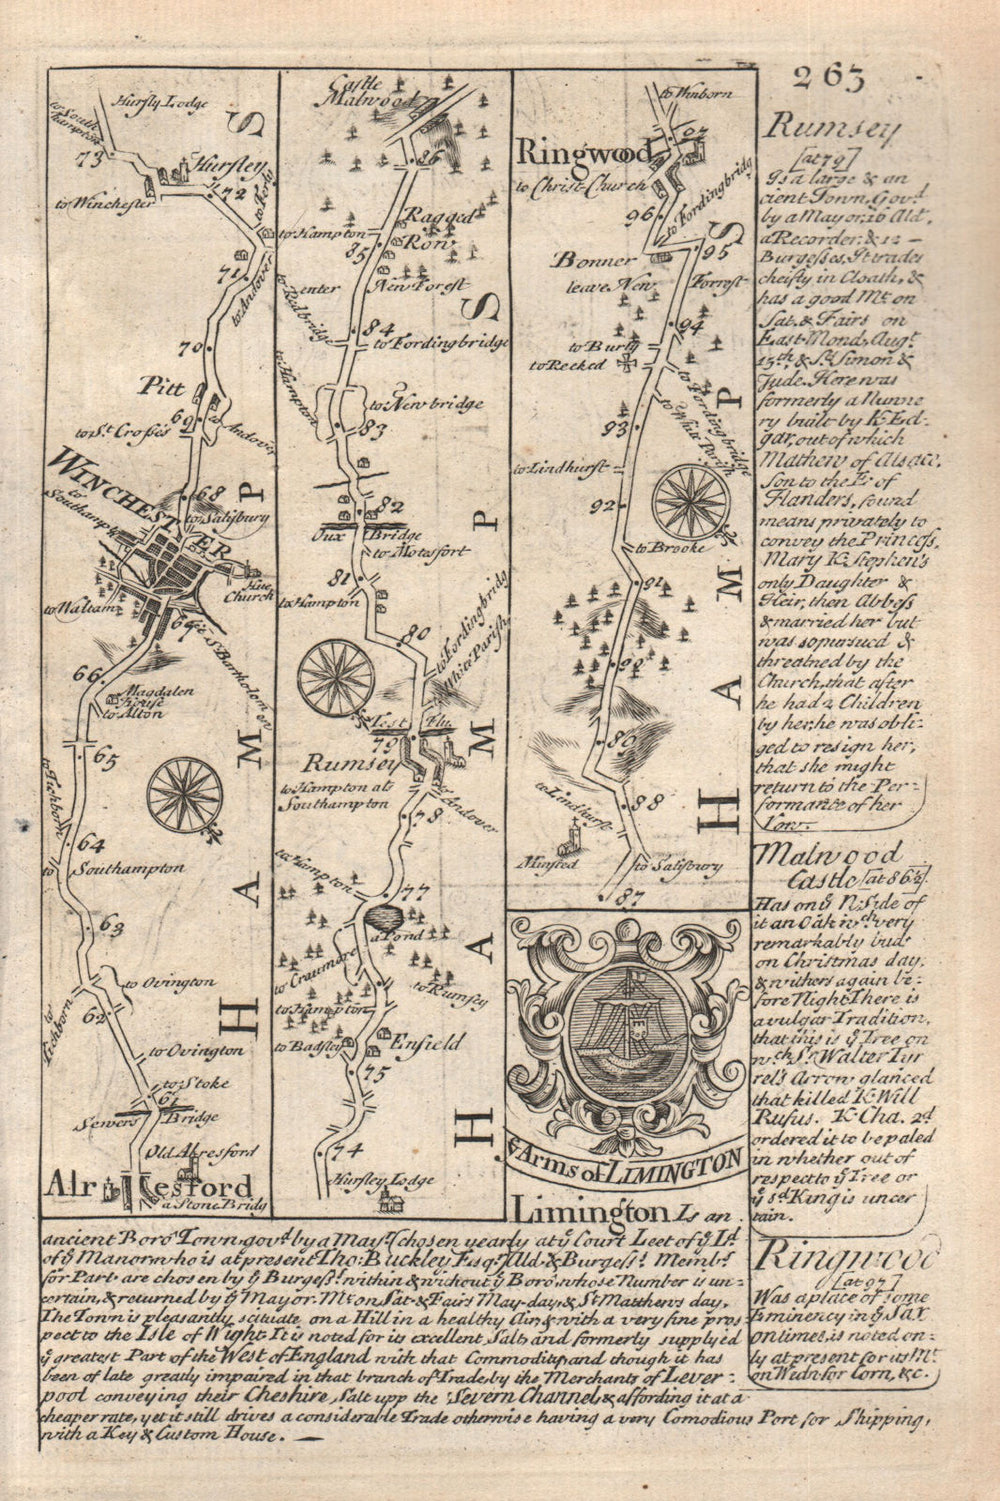 263
Hursly Lodge
to South
hampton
73
Hursley
72
to Winchester
71
to Andover
70
Pitt
69
to St. Crosses
to Andover
68
to Salisbury
WINCHESTER
to
Southampton
Church
to Waltam
67
to St Bartholomew
66
Magdalen
house
to Alton
65
to Tichborn
64
Southampton
63
to Ovington
62
to
Tichborn
to Ovington
to Stoke
61
Sewers Bridge
Old Alresford
Alresford
a Stone Bridg
HAMPS
Castle
Malwood
86
Ragged
Row
to Hampton
85
enter New Forest
to Redbridge
84
to Fordingbridge
to Hampton
to Newbridge
83
82
Tux Bridge
to Motesfort
81
to Hampton
80
to Fordingbridg
White Parish
Test Flu.
79
Rumsey
to Hampton als
Southampton
to Andover
78
to Hampton
77
a Pond
to Craumore
to Rumsey
to Hampton
to Badsley
Enfield
75
74
Hursley Lodge
HAMPS
to Winborn
97
Ringwood
to Christ-Church
to Fordingbridg
96
95
Bonner
leave New Forrest
94
to Burly
to Recked
to Fordingbridge
White Parish
93
to Lindhurst
92
to Brooke
91
90
89
88
to Lindhurst
Minsted
to Salisbury
87
HAMPS
ẙ Arms of LIMINGTON
Rumsey
[at 79]
Is a large & an
cient Town, Govd.
by a Mayor, 16 Ald.
a Recorder, & 12 —
Burgesses, It trades
cheifly in Cloath, &
has a good Mt. on
Sat. & Fairs on
East-Mond. Augt.
15th, & St. Simon &
Jude. Here was
formerly a Nunne
ry built by K. Ed-
gar, out of which
Mathew of Alsace,
Son to the E. of
Flanders, found
means privately to
convey the Princess,
Mary K. Stephen's
only Daughter &
Heir, then Abbess
& married her but
was so pursued &
threatned by the
Church, that after
he had 2 Children
by her, he was obli-
ged to resign her,
that she might
return to the Per-
formance of her
Vow.
Malwood
Castle [at 86½].
Has on ẙ N. side of
it an Oak wch. very
remarkably buds
on Christmas day,
& withers again be-
fore Night. There is
a vulgar Tradition,
that this is ẙ Tree on
wch. Sr. Walter Tyr
rel's Arrow glanced
that killed K. Will
Rufus. K. Cha. 2d.
ordered it to be paled
in whether out of
respect to ẙ Tree or
ẙ sd. King is uncer
tain.
Ringwood
[at 97]
Was a place of some
Eminency in ẙ Sax
on times, is noted on-
ly at present for its Mt.
on Wedn. for Corn, &c.
Limington Is an
ancient Boro' Town, govd. by a Mayr. chosen yearly at ẙ Court Leet of ẙ Ld.
of ẙ Manor, who is at present Tho: Buckley Esqr. Ald. & Burgesss. Membrs.
for Parlt. are chosen by ẙ Burgesss. within & without ẙ Boro', whose Number is un-
certain, & returned by ẙ Mayor. Mt. on Sat. & Fairs May-day, & St. Matthews day,
The Town is pleasantly scituate on a Hill in a healthy Air, & with a very fine pros
pect to the Isle of Wight. It is noted for its excellent Salt, and formerly supplyed
ẙ greatest Part of the West of England with that Commodity, and though it has
been of late greatly impaired in that branch of Trade, by the Merchants of Lever-
pool conveying their Cheshire Salt upp the Severn Channel, & affording it at a
cheaper rate, yet it still drives a considerable Trade otherwise having a very Comodious Port for Shipping,
with a Key & Custom House. —